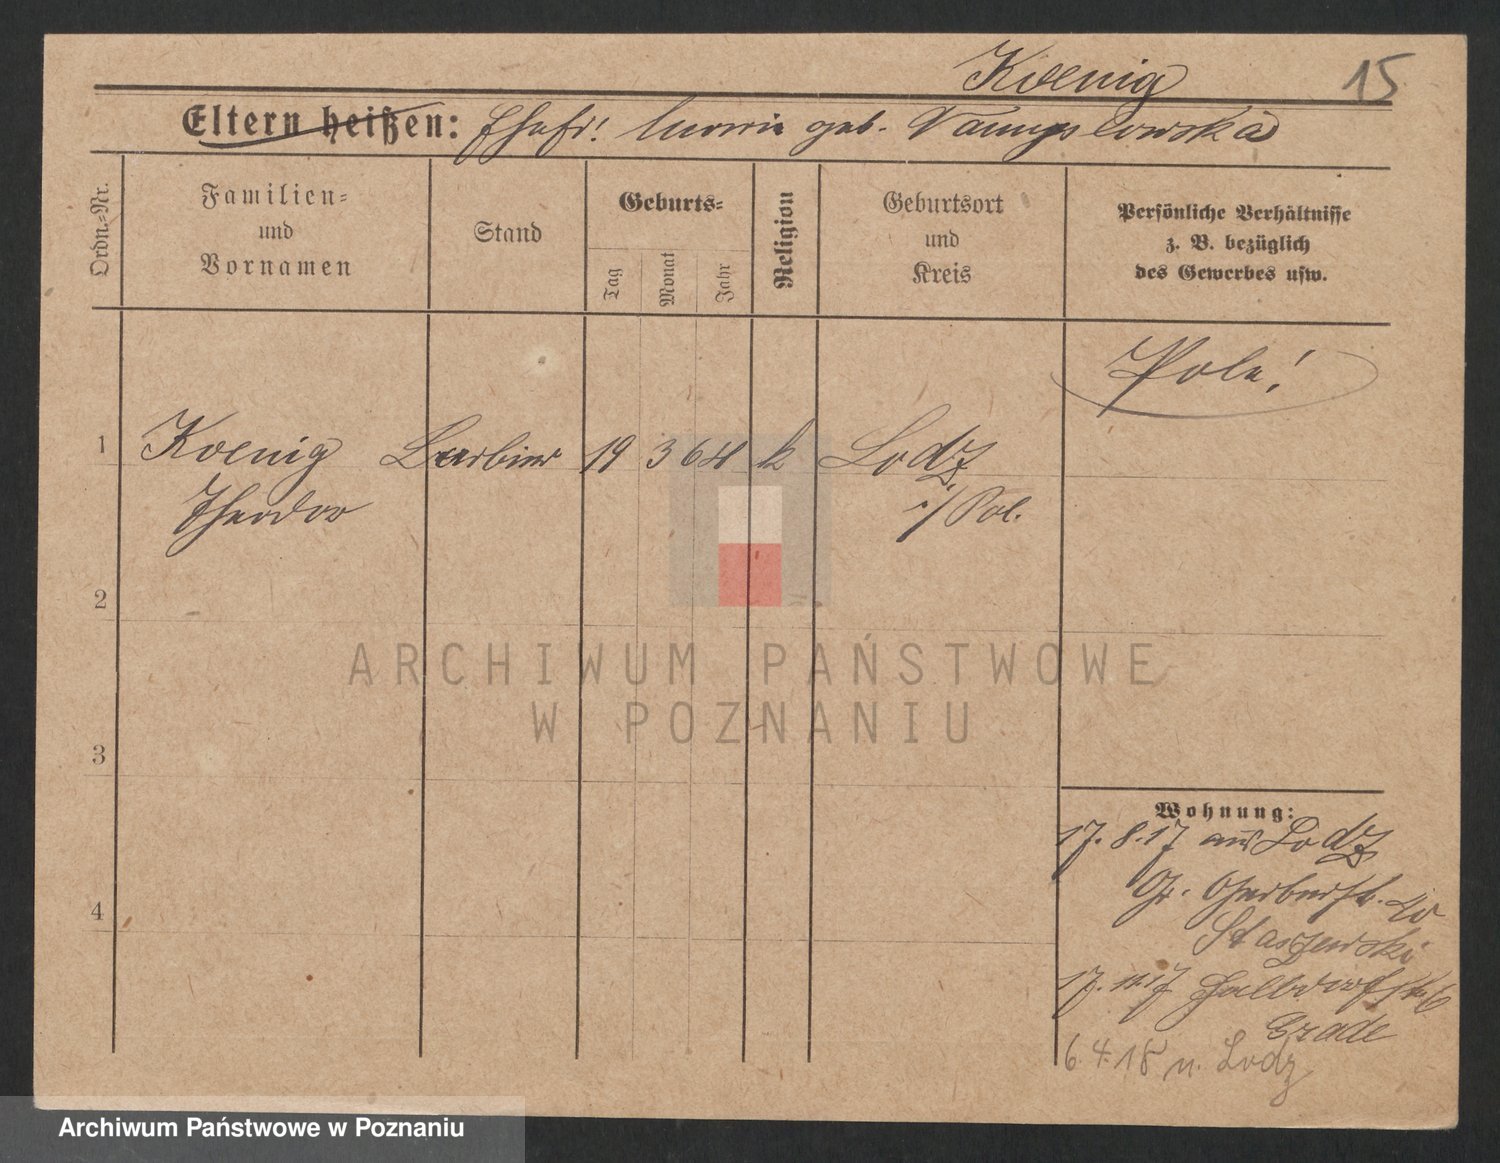 Koenig 15
Eltern heißen: Ehefr! geb.
Ordn.=Nr.
Familien=
und
Vornamen
Stand
Geburts=
Tag
Monat
Jahr
Religion
Geburtsort
und
Kreis
Persönliche Verhältnisse
z. B. bezüglich
des Gewerbes usw.
Pole!
1 Koenig Barbier 19 3 64 k Lodz
Theodor i/Pol.
2
3
4
Wohnung:
17. 8. 17 aus Lodz
Gr. Gerberstr. 40
Staszewski
17. 11. 17 Halbdorfstr. 6
Grade
6. 4. 18 n. Lodz
ARCHIWUM PAŃSTWOWE
W POZNANIU
Archiwum Państwowe w Poznaniu